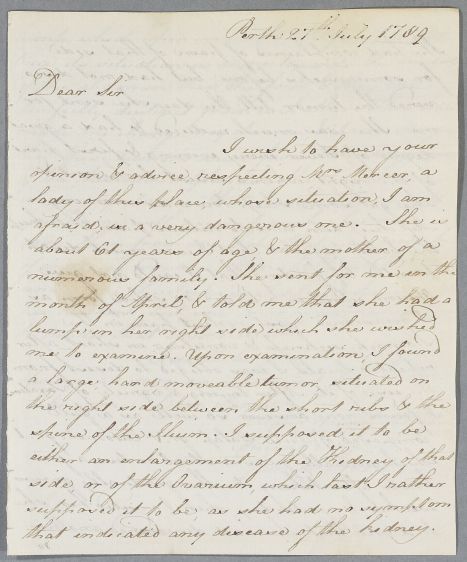 Perth 27th July 1789
Dear Sir
I wish to have your
opinion & advice respecting Mrs Mercer, a
lady of this place whose situation, I am
afraid, is a very dangerous one. She is
about 61 years of age & the mother of a
numerous family. She sent for me in the
month of April, & told me that she had a
lump in her right side which she wished
me to examine. Upon examination, I found
a large, hard moveable tumor, situated on
the right side between the short ribs & the
spine of the Ilium. I supposed it to be
either an enlargement of the Kidney of that
side or of the Ovarium which last I rather
supposed it to be as she had no symptom
that indicated any disease of the kidney.